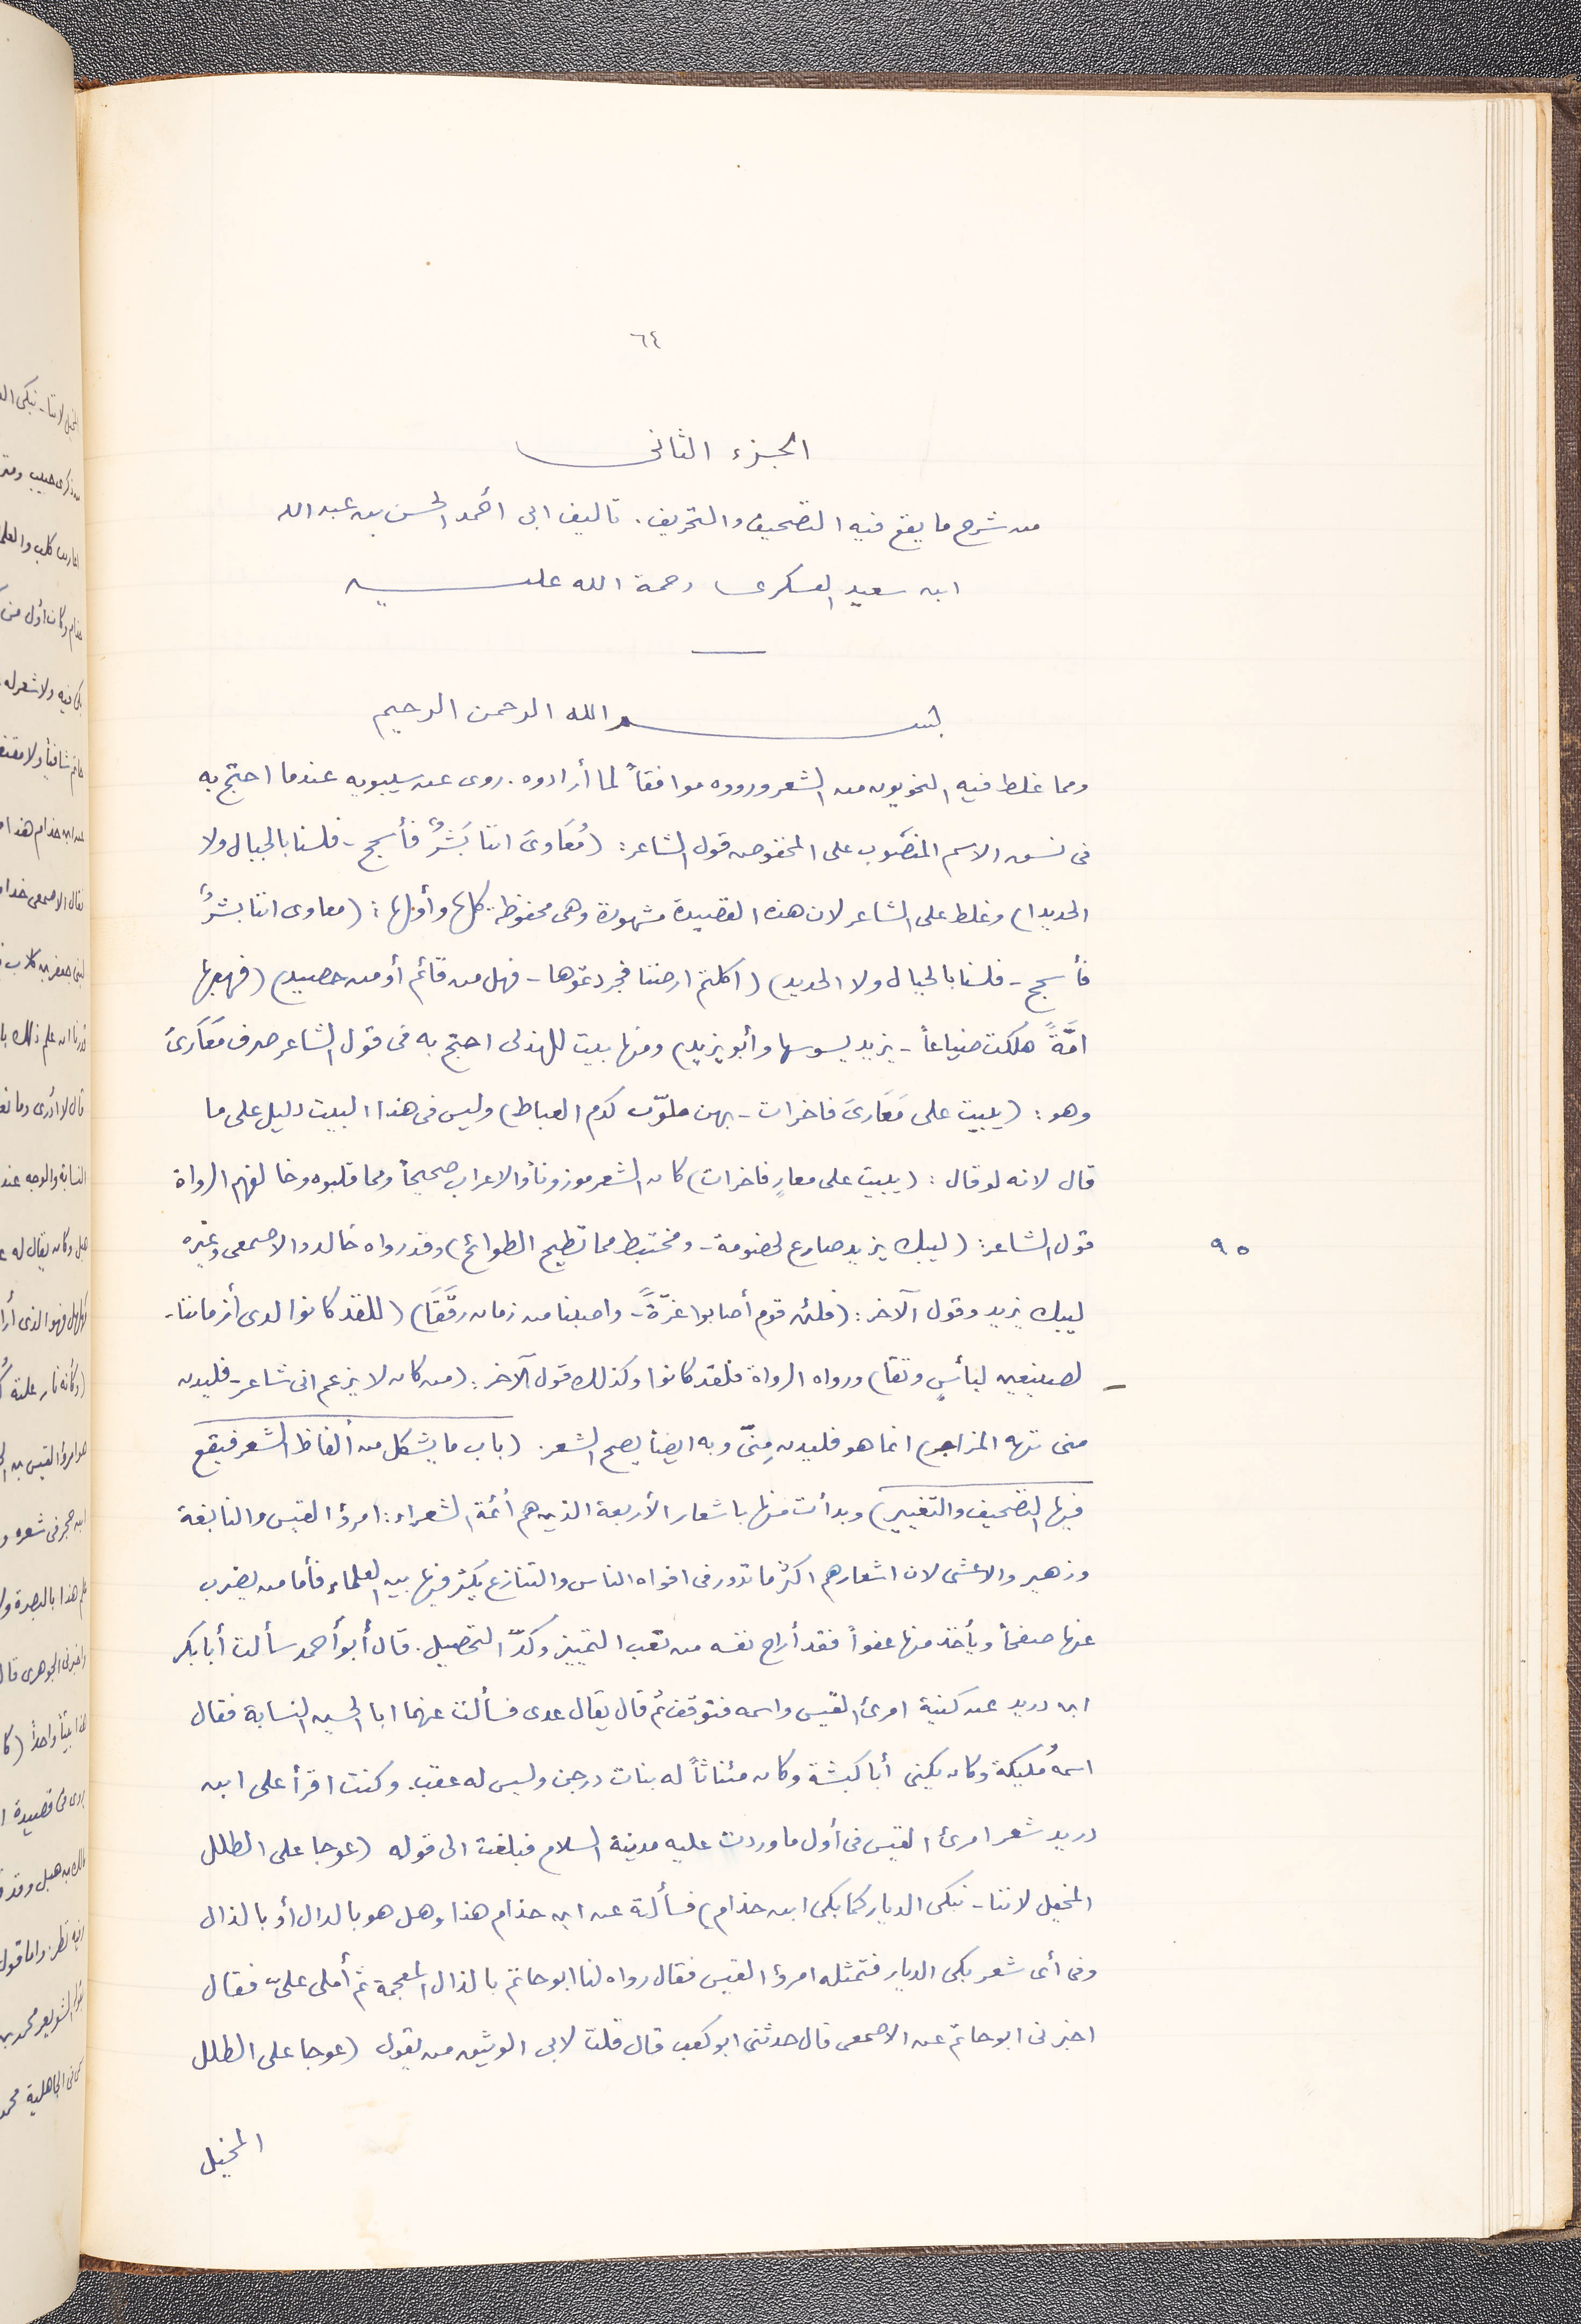 ٦٤
الجزء الثانى
من شرح ما يقع فيه التصحيف والتحريف . تاليف ابى أحمد الحسن بن عبد الله
ابن سعيد العسكرى رحمة الله عليه
بسم الله الرحمن الرحيم
ومما غلط فيه النحويون من الشعر ورووه موافقاً لما أرادوه . روى عن سيبويه عندما احتج به
فى نسق الاسم المنصوب على المخفوض قول الشاعر : (مُعَاوىَ اننا بَشَرٌ فأسجح - فلسنا بالجبال ولا
الحديدا) وغلط على الشاعر لان هذه القصيدة مشهورة وهى محفوظة كلها وأولها : (معاوى اننا بشرٌ
فأسجح - فلسنا بالجبال ولا الحديد) (اكلتم ارضنا فجردتموها - فهل من قائم أو من حصيد) (فهبها
امَّةً هلكت ضياعاً - يزيد يسوسها وأبو يزيد) ومنها بيت للهذلى احتج به فى قول الشاعر صرف مَعَارىَ
وهو : (يبيت على مَعَارىَ فاخرات - بهن ملوّب كدم العباط) وليس فى هذا البيت دليل على ما
قال لانه لو قال : (يبيت على معارٍ فاخرات) كان الشعر موزوناً والاعراب صحيحاً ومما قلبوه وخالفهم الرواة
٩٥ قول الشاعر : (ليبك يزيد ضارع لخصومة - ومختبط مما تطيح الطوائح) وقد رواه خالد والاصمعى وغيره
ليبك يزيد وقول الآخر : (فلئن قوم أصابوا غرّةً - واصبنا من زمان رقَقَا) (للقد كانوا لدى أزماننا -
لصنيعين لبأسٍ وتقا) ورواه الرواة فلقد كانوا وكذلك قول الآخر : (من كان لا يزعم انى شاعر - فليدن
منى تنهه المزاجر) انما هو فليدن مِنّى وبه ايضاً يصح الشعر . (باب ما يشكل من ألفاظ الشعر فيقع
فيها التصحيف والتغيير) وبدأت منها باشعار الأربعة الذين هم أئمة الشعراء : امرؤ القيس والنابغة
وزهير والاعشى لان اشعارهم اكثر ما تدور فى افواه الناس والتنازع يكثر فيها بين العلماء فأما من يضرب
عنها صفحاً ويأخذ منها عفواً فقد أراح نفسه من تعب التمييز وكدّ التحصيل . قال أبو أحمد سألت أبا بكر
ابن دريد عن كنية امرئ القيس واسمه فتوقف ثم قال يقال عدى فسألت عنهما ابا الحسين النسابة فقال
اسمه مُليكة وكان يكنى أبا كبشة وكان مئناثاً له بنات درجن وليس له عقب . وكنت اقرأ على ابن
دريد شعر امرئ القيس فى أول ما وردت عليه مدينة السلام فبلغت الى قوله (عوجا على الطلل
المخيل لاننا - نبكى الديار كما بكى ابن حذام) فسألته عن ابن حذام هذا وهل هو بالدال أو بالذال
وفى أى شعر بكى الديار فتمثله امرؤ القيس فقال رواه لنا ابو حاتم بالذال المعجمة ثم أملى علىّ فقال
اخبرنى ابو حاتم عن الاصمعى قال حدثنى ابو كعب قال قلت لابى الوثيق من يقول (عوجا على الطلل
المخيل